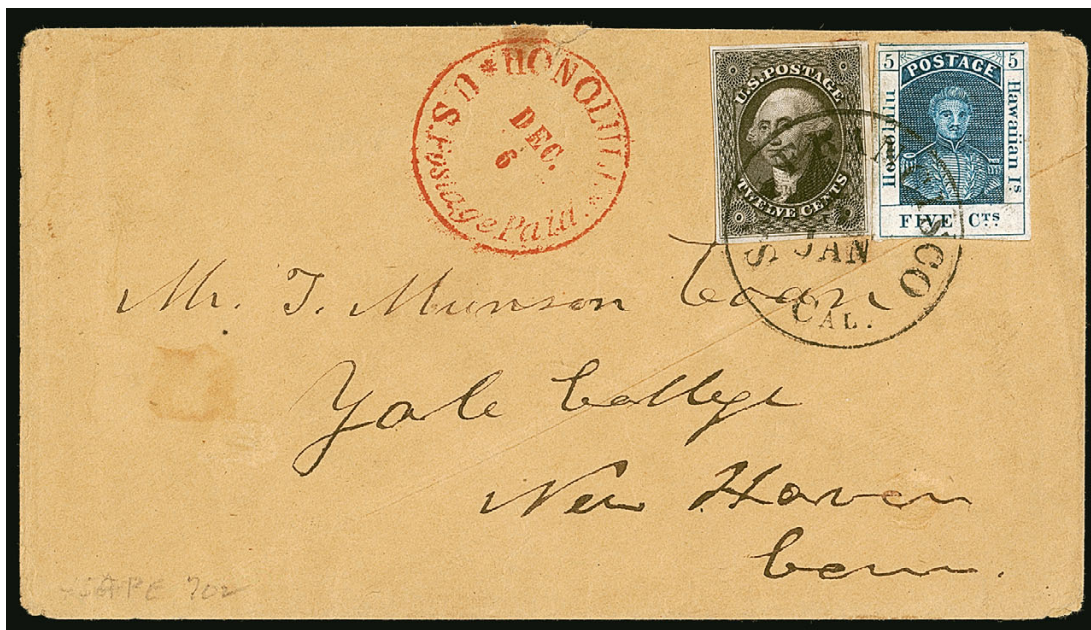 HONOLULU * U.S. Postage Paid *
DEC.
6
U.S. POSTAGE
TWELVE CENTS
5 POSTAGE 5
Honolulu
Hawaiian Is.
FIVE Cts
SAN FRANCISCO
JAN
CAL.
Mr. T. Munson Coan
Yale College
New Haven
Conn.